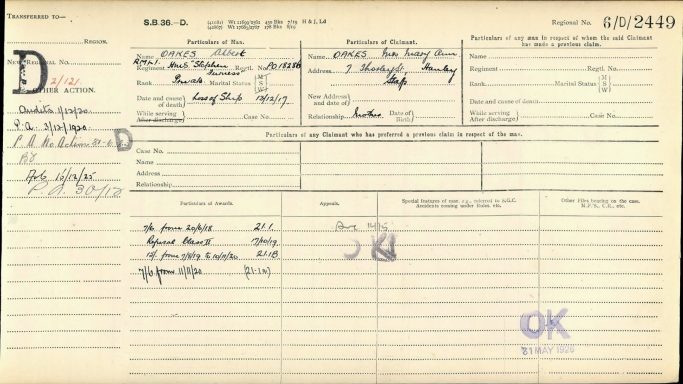 TRANSFERRED TO—
S.B. 36.—D.
H & J, Ld
Regional No. 6/D/2449
REGION.
D
2/121.
OTHER ACTION.
Audits 1/12/20
P.A. 3/12/1920
P.A. No Action
D
16/12/25
P.A. 30/12
Particulars of Man.
Name OAKES Albert
R.M.L.I. HMS Stephen Furness
Regiment Regtl. No. PO 18286
Rank Private Marital Status M S W
Date and cause of death Loss of Ship 13/12/17
While serving
After discharge Case No.
Particulars of Claimant.
Name OAKES Mrs Mary Ann
Address 7 Hanley
Staffs
New Address and date of
Relationship Mother Date of Birth
Particulars of any man in respect of whom the said Claimant has made a previous claim.
Name
Regiment Regtl. No.
Rank Marital Status M S W
Date and cause of death
While serving
After discharge Case No.
Particulars of any Claimant who has preferred a previous claim in respect of the man.
Case No.
Name
Address
Relationship
Particulars of Awards.
Appeals.
Special features of case, e.g., referred to S.G.C. Accidents coming under Rules, etc.
Other Files bearing on the case. M.P'S., C.R., etc.
7/6 from 20/6/18 21.1.
Refusal Class II 17/10/19
12/- from 7/8/19 to 10/11/20 21.1B
7/6 from 11/11/20 (21-1B)
OK
OK
21 MAY 1926